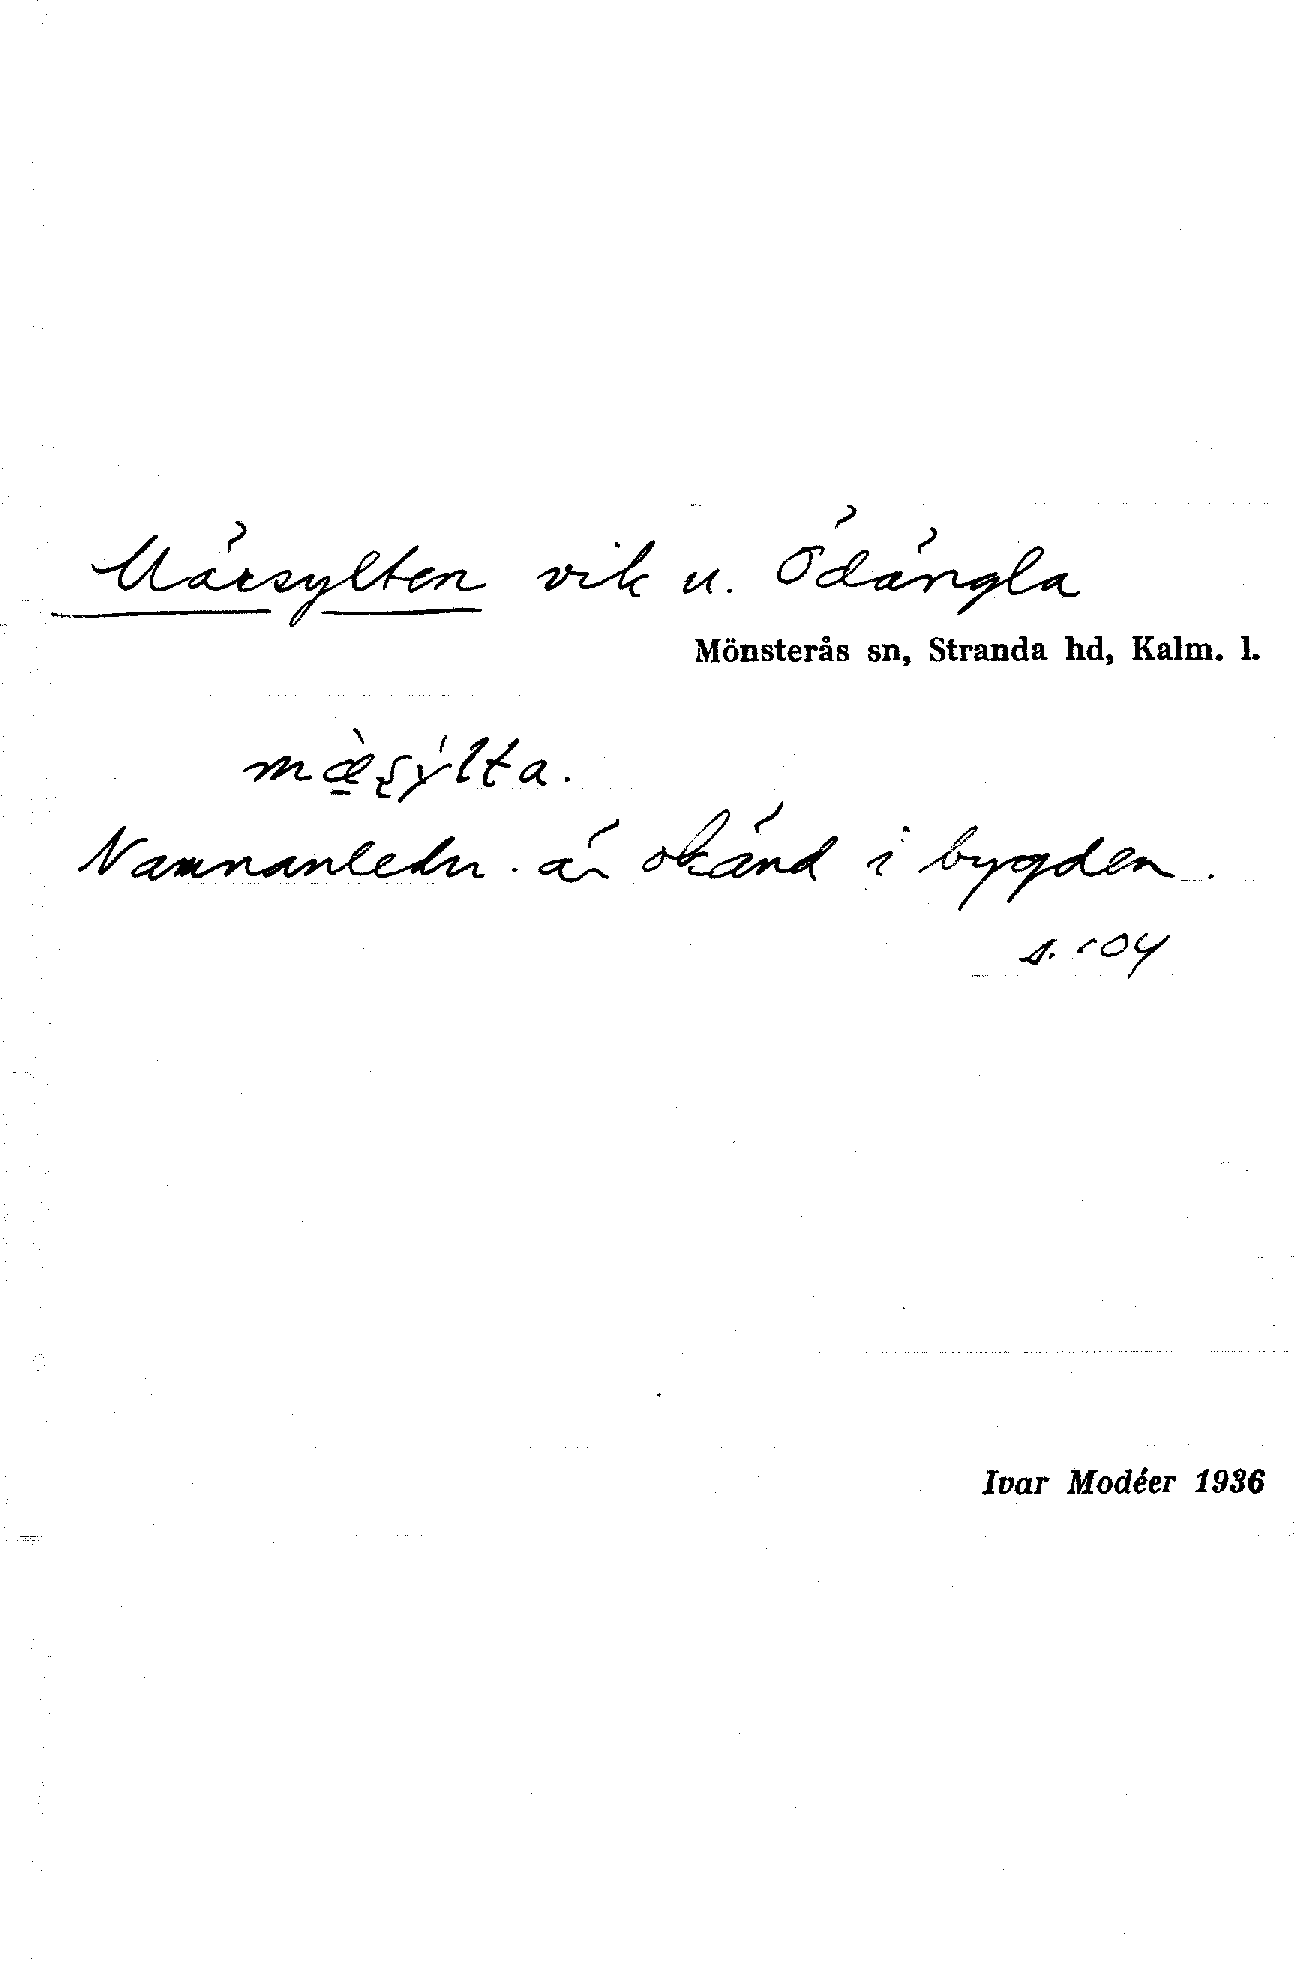 Märsylten vik u. Ödängla
Mönsterås sn, Stranda hd, Kalm. l.
mæ̀ʂy̒lta.
Namnanledn. är okänd i bygden.
s. 104
Ivar Modéer 1936